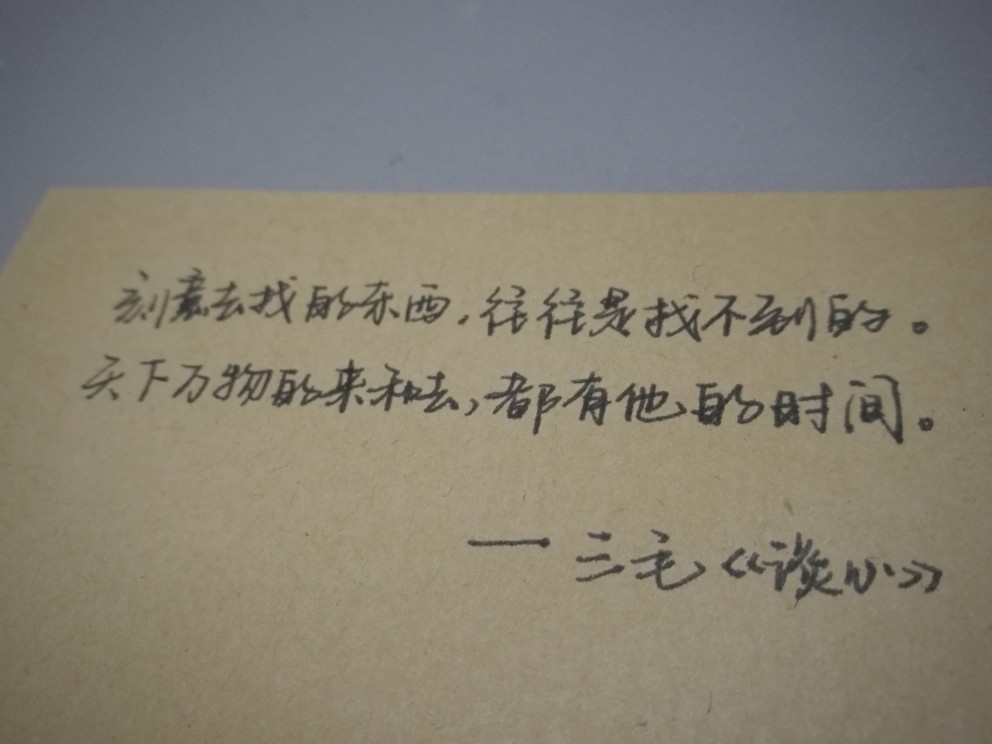 刻意去找的东西,往往是找不到的。
天下万物的来和去,都有他的时间。
—三毛《谈心》